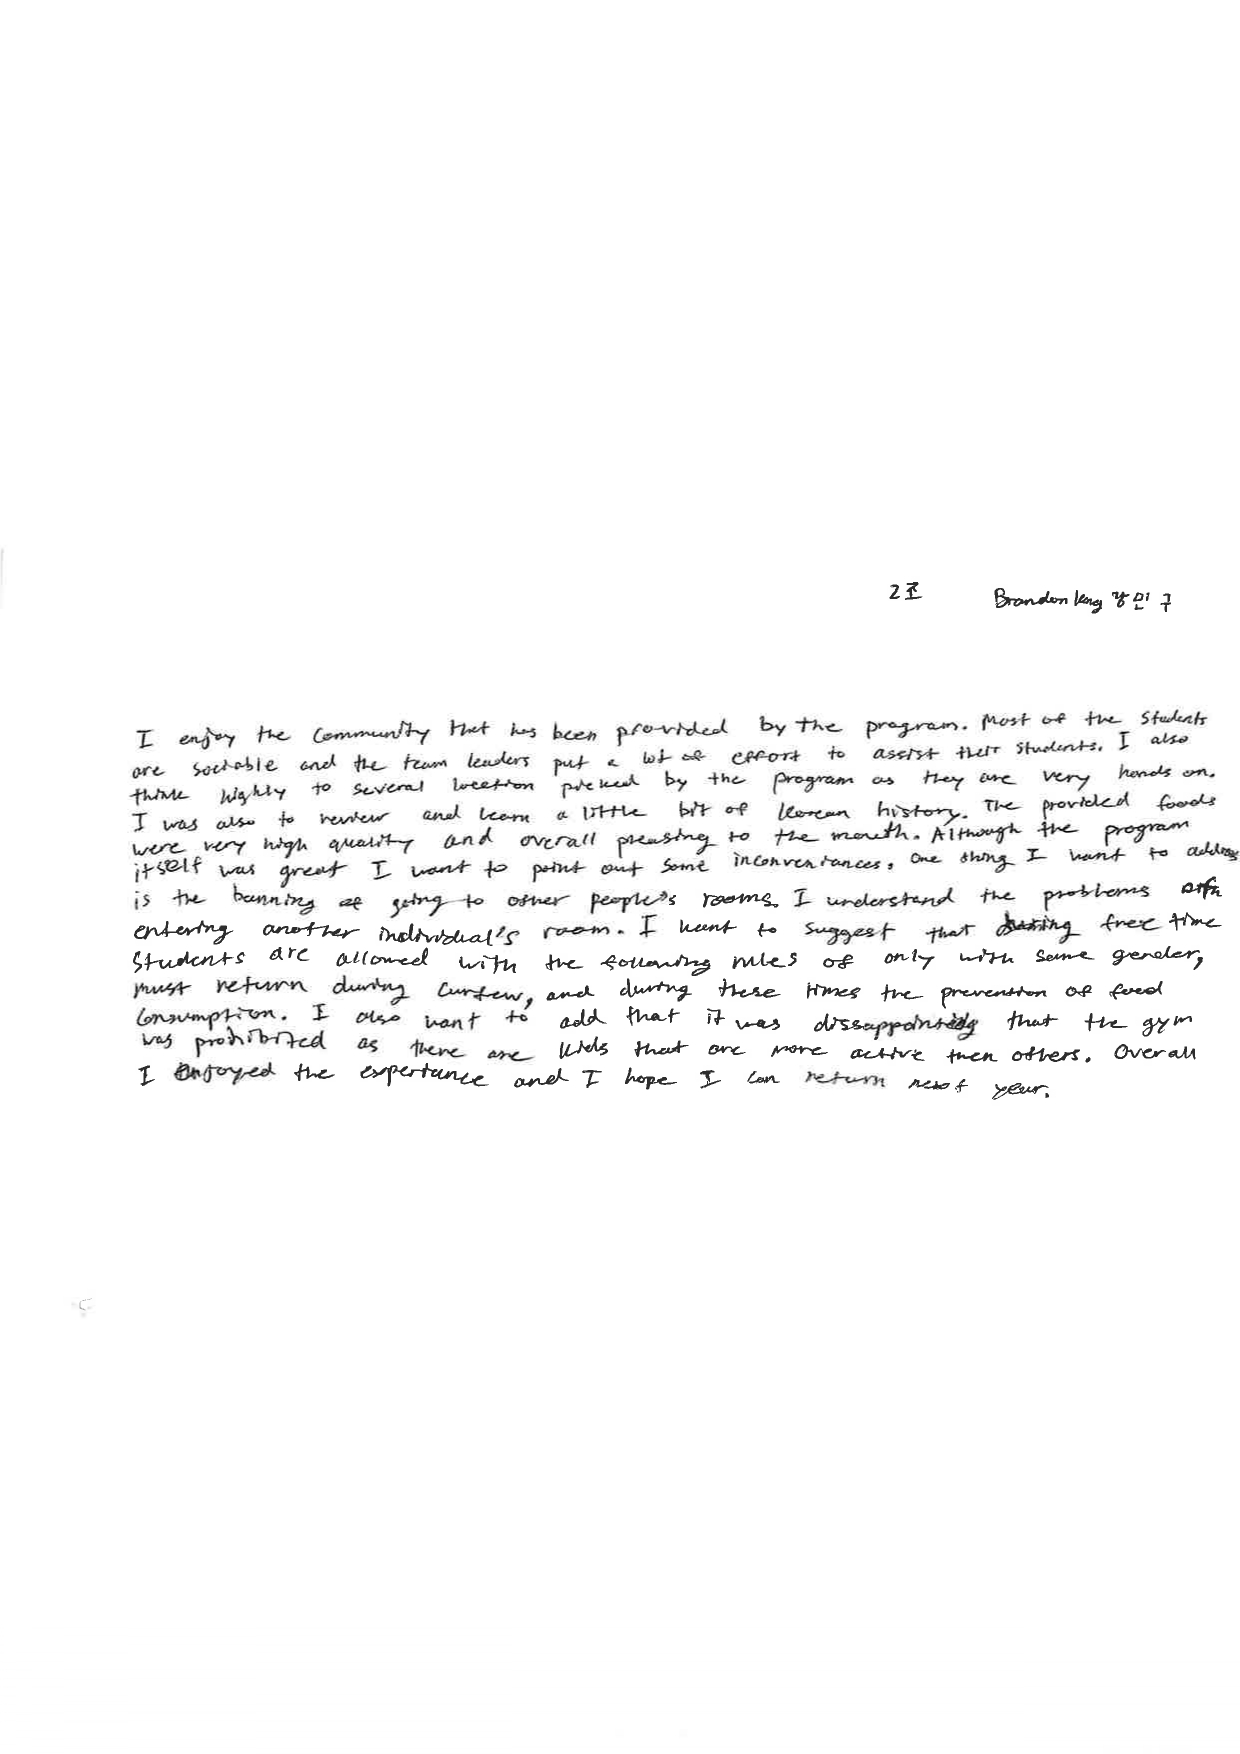 2조 Brandon Kang 강민구
I enjoy the community that has been provided by the program. Most of the students
are sociable and the team leaders put a lot of effort to assist their students. I also
think highly to several location picked by the program as they are very hands on.
I was also to review and learn a little bit of Korean history. The provided foods
were very high quality and overall pleasing to the mouth. Although the program
itself was great I want to point out some inconveniances. One thing I want to address
is the banning of going to other people's rooms. I understand the problems
entering another individual's room. I want to suggest that during free time
students are allowed with the following rules of only with same gender,
must return during curfew, and during these times the prevention of food
consumption. I also want to add that it was dissappointing that the gym
was prohibited as there are kids that are more active then others. Overall
I enjoyed the experiance and I hope I can return next year.